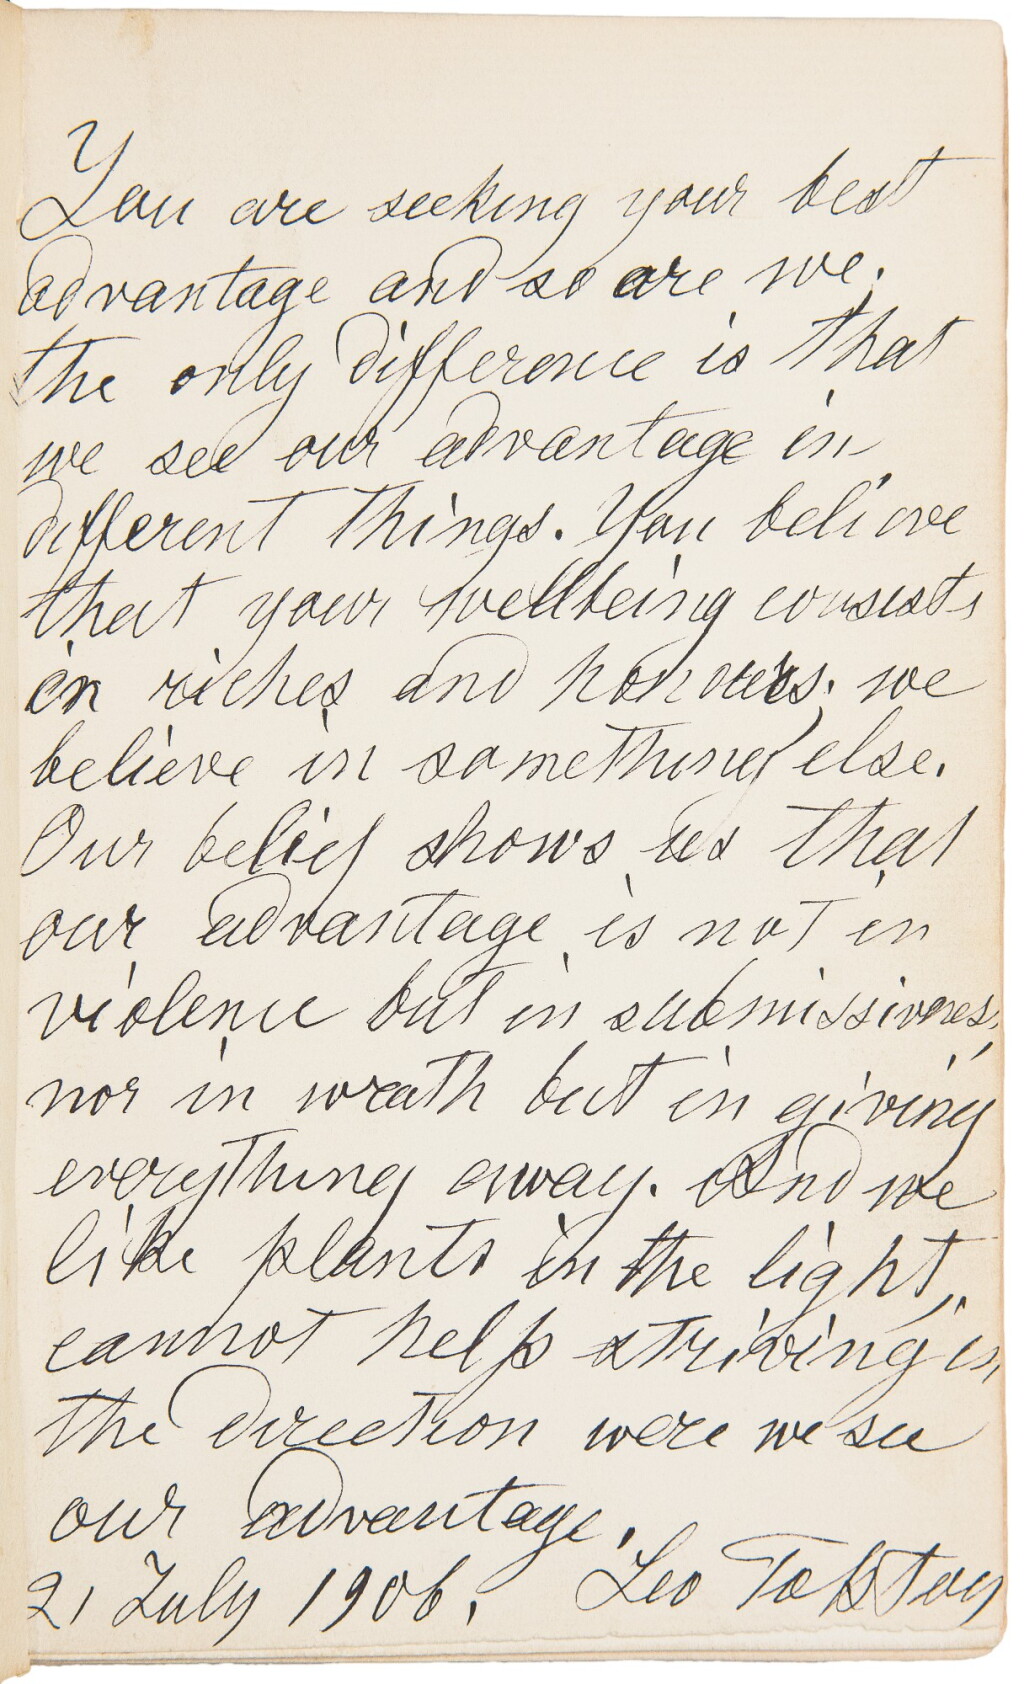 You are seeking your best
advantage and so are we.
the only difference is that
we see our advantage in
different things. You believe
that your wellbeing consists
in riches and honours; we
believe in something else.
Our belief shows us that
our advantage is not in
violence but in submissivnes,
nor in wrath but in giving
everything away. And we
like plants in the light,
cannot help striving in
the direction were we see
our advantage.
21 July 1906. Leo Tolstoy